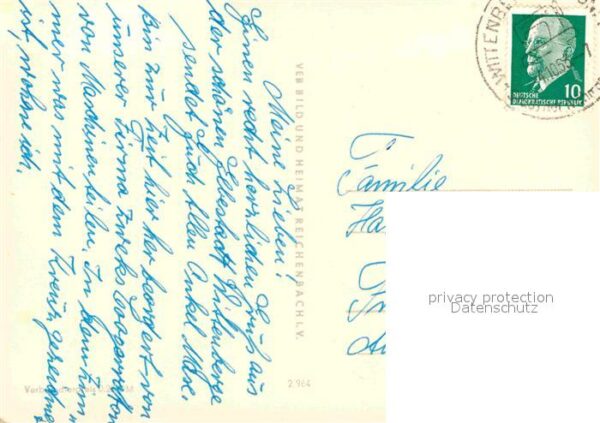 Meine Lieben!
Einen recht herzlichen Gruß aus
der schönen Elbestadt Wittenberge
sendet Euch allen Onkel
Bin zur Zeit hier her beordert von
unserer Firma zwecks
von Maschinenteilen. In
mer was mit dem Kreuz
ist, wohne ich.
VEB BILD UND HEIMAT REICHENBACH I. V.
2964
WITTENBE
10
DEUTSCHE
DEMOKRATISCHE REPUBLIK
Familie
Ha
privacy protection
Datenschutz